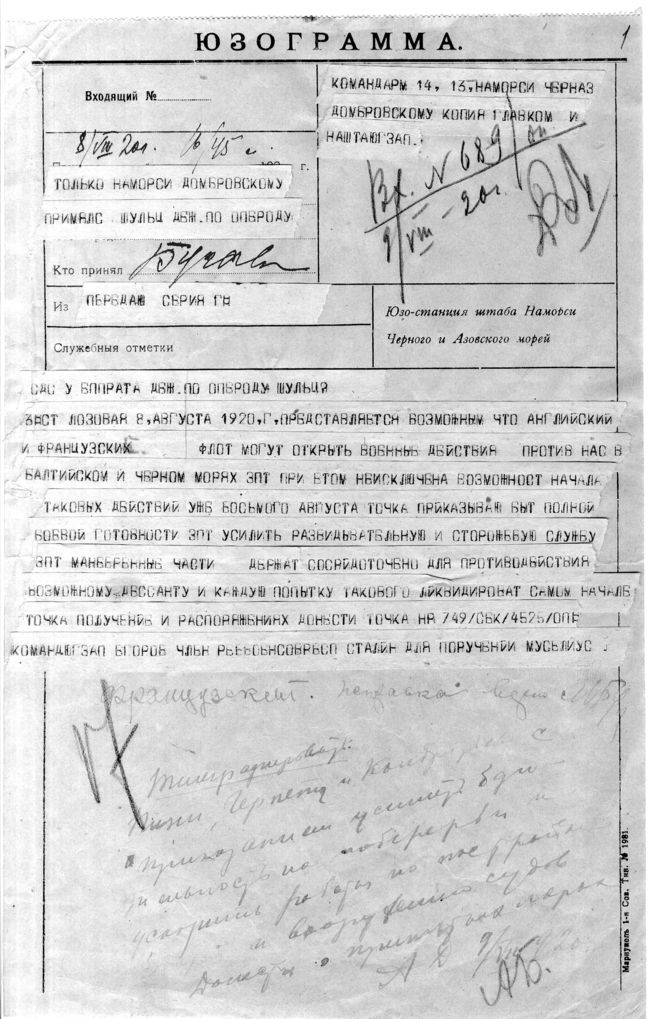 1
ЮЗОГРАММА.
Входящий №
8/VIII 20г. 16/45
г.
ТОЛЬКО НАМОРСИ ДОМБРОВСКОМУ
ПРИМЯЛС ШУЛЬЦ ДВЖ.ПО ОПВРОДУ
Кто принял
Из ПЕРЕДАЮ СЕРИЯ ГА
Служебные отметки
КОМАНДАРМ 14, 13,НАМОРСИ ЧЕРНАЗ
ДОМБРОВСКОМУ КОПИЯ ГЛАВКОМ И
НАШТАЮГЗАП.
Вх. N 689/оп.
9/VIII-20г.
Юзо-станция штаба Наморси
Черного и Азовского морей
СДС У ВППРАТА ДВЖ.ПО ОПВРОДУ ШУЛЬЦ?
ЗАСТ ЛОЗОВАЯ 8,АВГУСТА 1920,Г,ПРЕДСТАВЛЯЕТСЯ ВОЗМОЖНЫМ ЧТО АНГЛИЙСКИЙ
И ФРАНЦУЗСКИХ ФЛОТ МОГУТ ОТКРЫТЬ ВОЕННЫЕ ДЕЙСТВИЯ ПРОТИВ НАС В
БАЛТИЙСКОМ И ЧЕРНОМ МОРЯХ ЗПТ ПРИ ЕТОМ НЕИСКЛЮЧЕНА ВОЗМОЖНОСТ НАЧАЛА
ТАКОВЫХ ДЕЙСТВИЙ УЖЕ ВОСЬМОГО АВГУСТА ТОЧКА ПРИКАЗЫВАЮ БЫТ ПОЛНОЙ
БОЕВОЙ ГОТОВНОСТИ ЗПТ УСИЛИТЬ РАЗВИДЫВАТЕЛЬНУЮ И СТОРОЖЕВУЮ СЛУЖБУ
ЗПТ МАНЕВРЕННЫЕ ЧАСТИ ДЕРЖАТ СОСРИДОТОЧЕНО ДЛЯ ПРОТИВОДЕЙСТВИЯ
ВОЗМОЖНОМУ ДЕССАНТУ И КАЖДУЮ ПОПЫТКУ ТАКОВОГО ЛИКВИДИРОВАТ САМОМ НАЧАЛЕ
ТОЧКА ПОЛУЧЕНИЕ И РАСПОРЯЖЕНИЯХ ДОНЕСТИ ТОЧКА НР 749/СЕК/4525/ОПЕ
КОМАНДЮГЗАП ЕГОРОВ ЧЛЕН РЕВВОЕНСОВРЕСП СТАЛИН ДЛЯ ПОРУЧЕНИЙ МУСЕЛИУС
Французский.
Телеграфировать:
с
приказанием усилить бди-
тельность на побережьи и
ускорить работы по постройке
и вооружению судов
9/VIII 920
АБ.
Мариуполь 1-я Сов. Тип. № 1981.